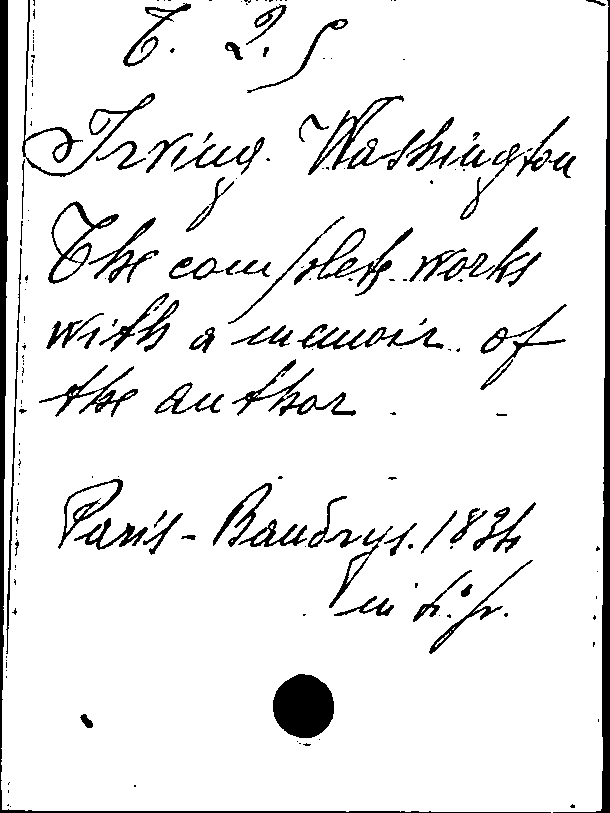 T. 2. S
Irving. Washington
The complete works
with a memoir of
the author.
Paris - Baudrys. 1834
in